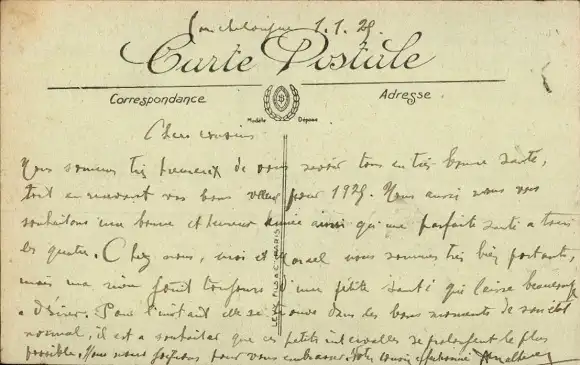 1.1.29.
Carte Postale
Correspondance
Adresse
Modèle Déposé
Chers cousins
Nous sommes très heureux de vous savoir tous en très bonne santé,
tout en recevant vos bons vœux pour 1929. Nous aussi nous vous
souhaitons une bonne et heureuse année ainsi qu'une parfaite santé a tous
les quatre. Chez nous, moi et nous sommes très bien portants,
mais ma jouit toujours d'une petite santé qui laisse beaucoup
a désirer. Pour l'instant elle se trouve dans des bons moments de
normal, il est a souhaiter que ces petits intervalles se prolongent le plus
possible. Nous nous pour vous embrasser. Votre cousin affectionné
LEVY FILS & C. PARIS